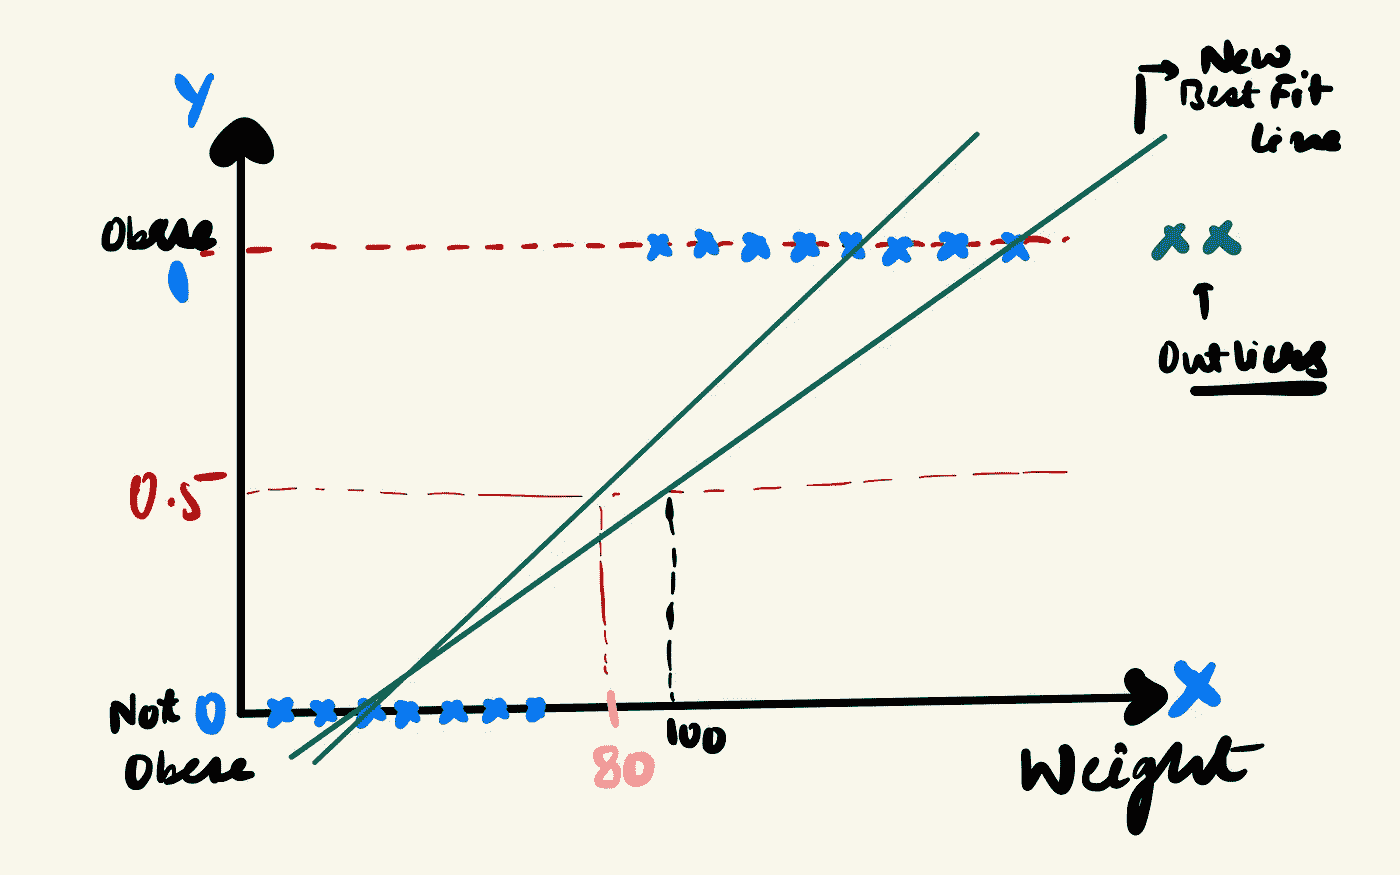 Y
New
Best Fit
Line
Obese
1
Outliers
0.5
Not 0
Obese
80
100
X
Weight